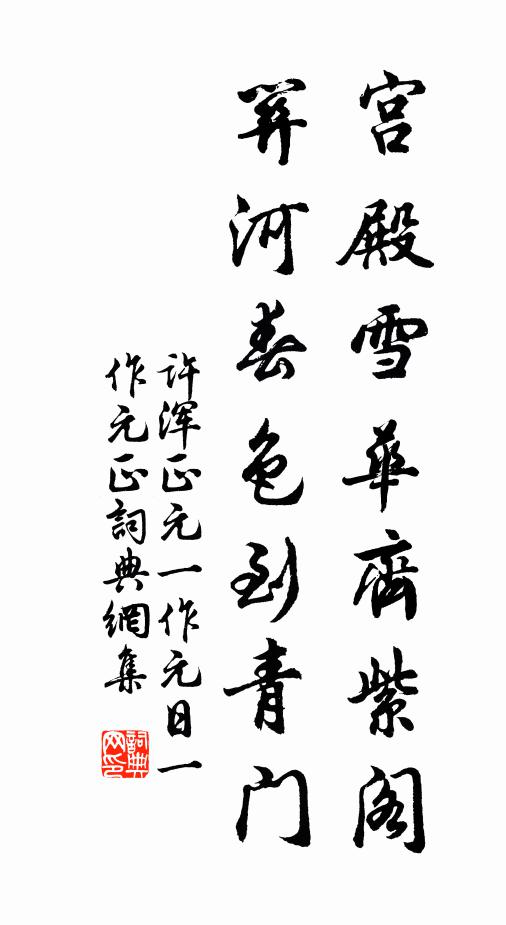 宫殿雪華齊紫阁
関河春色到青门
許渾正元一作元日一
作元正詞典網集
詞典网印